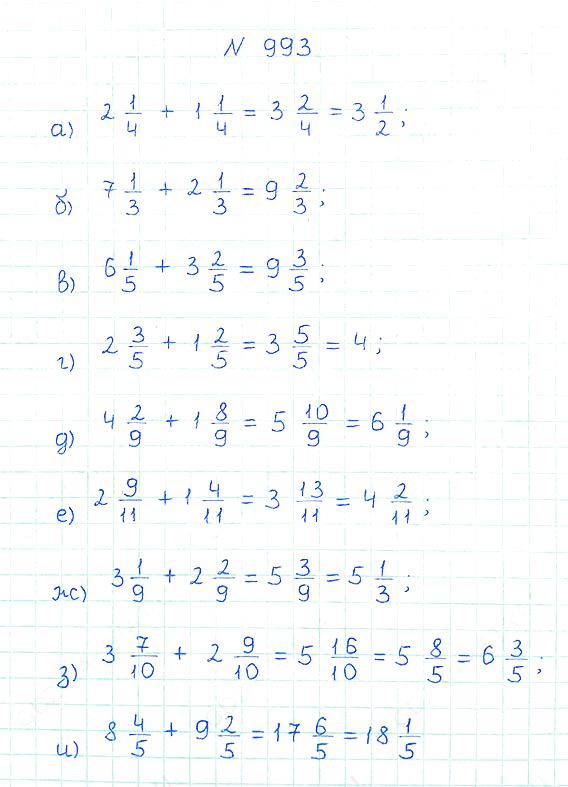 N 993
а) 2 1/4 + 1 1/4 = 3 2/4 = 3 1/2;
б) 7 1/3 + 2 1/3 = 9 2/3;
в) 6 1/5 + 3 2/5 = 9 3/5;
г) 2 3/5 + 1 2/5 = 3 5/5 = 4;
д) 4 2/9 + 1 8/9 = 5 10/9 = 6 1/9;
е) 2 9/11 + 1 4/11 = 3 13/11 = 4 2/11;
ж) 3 1/9 + 2 2/9 = 5 3/9 = 5 1/3;
з) 3 7/10 + 2 9/10 = 5 16/10 = 5 8/5 = 6 3/5;
и) 8 4/5 + 9 2/5 = 17 6/5 = 18 1/5